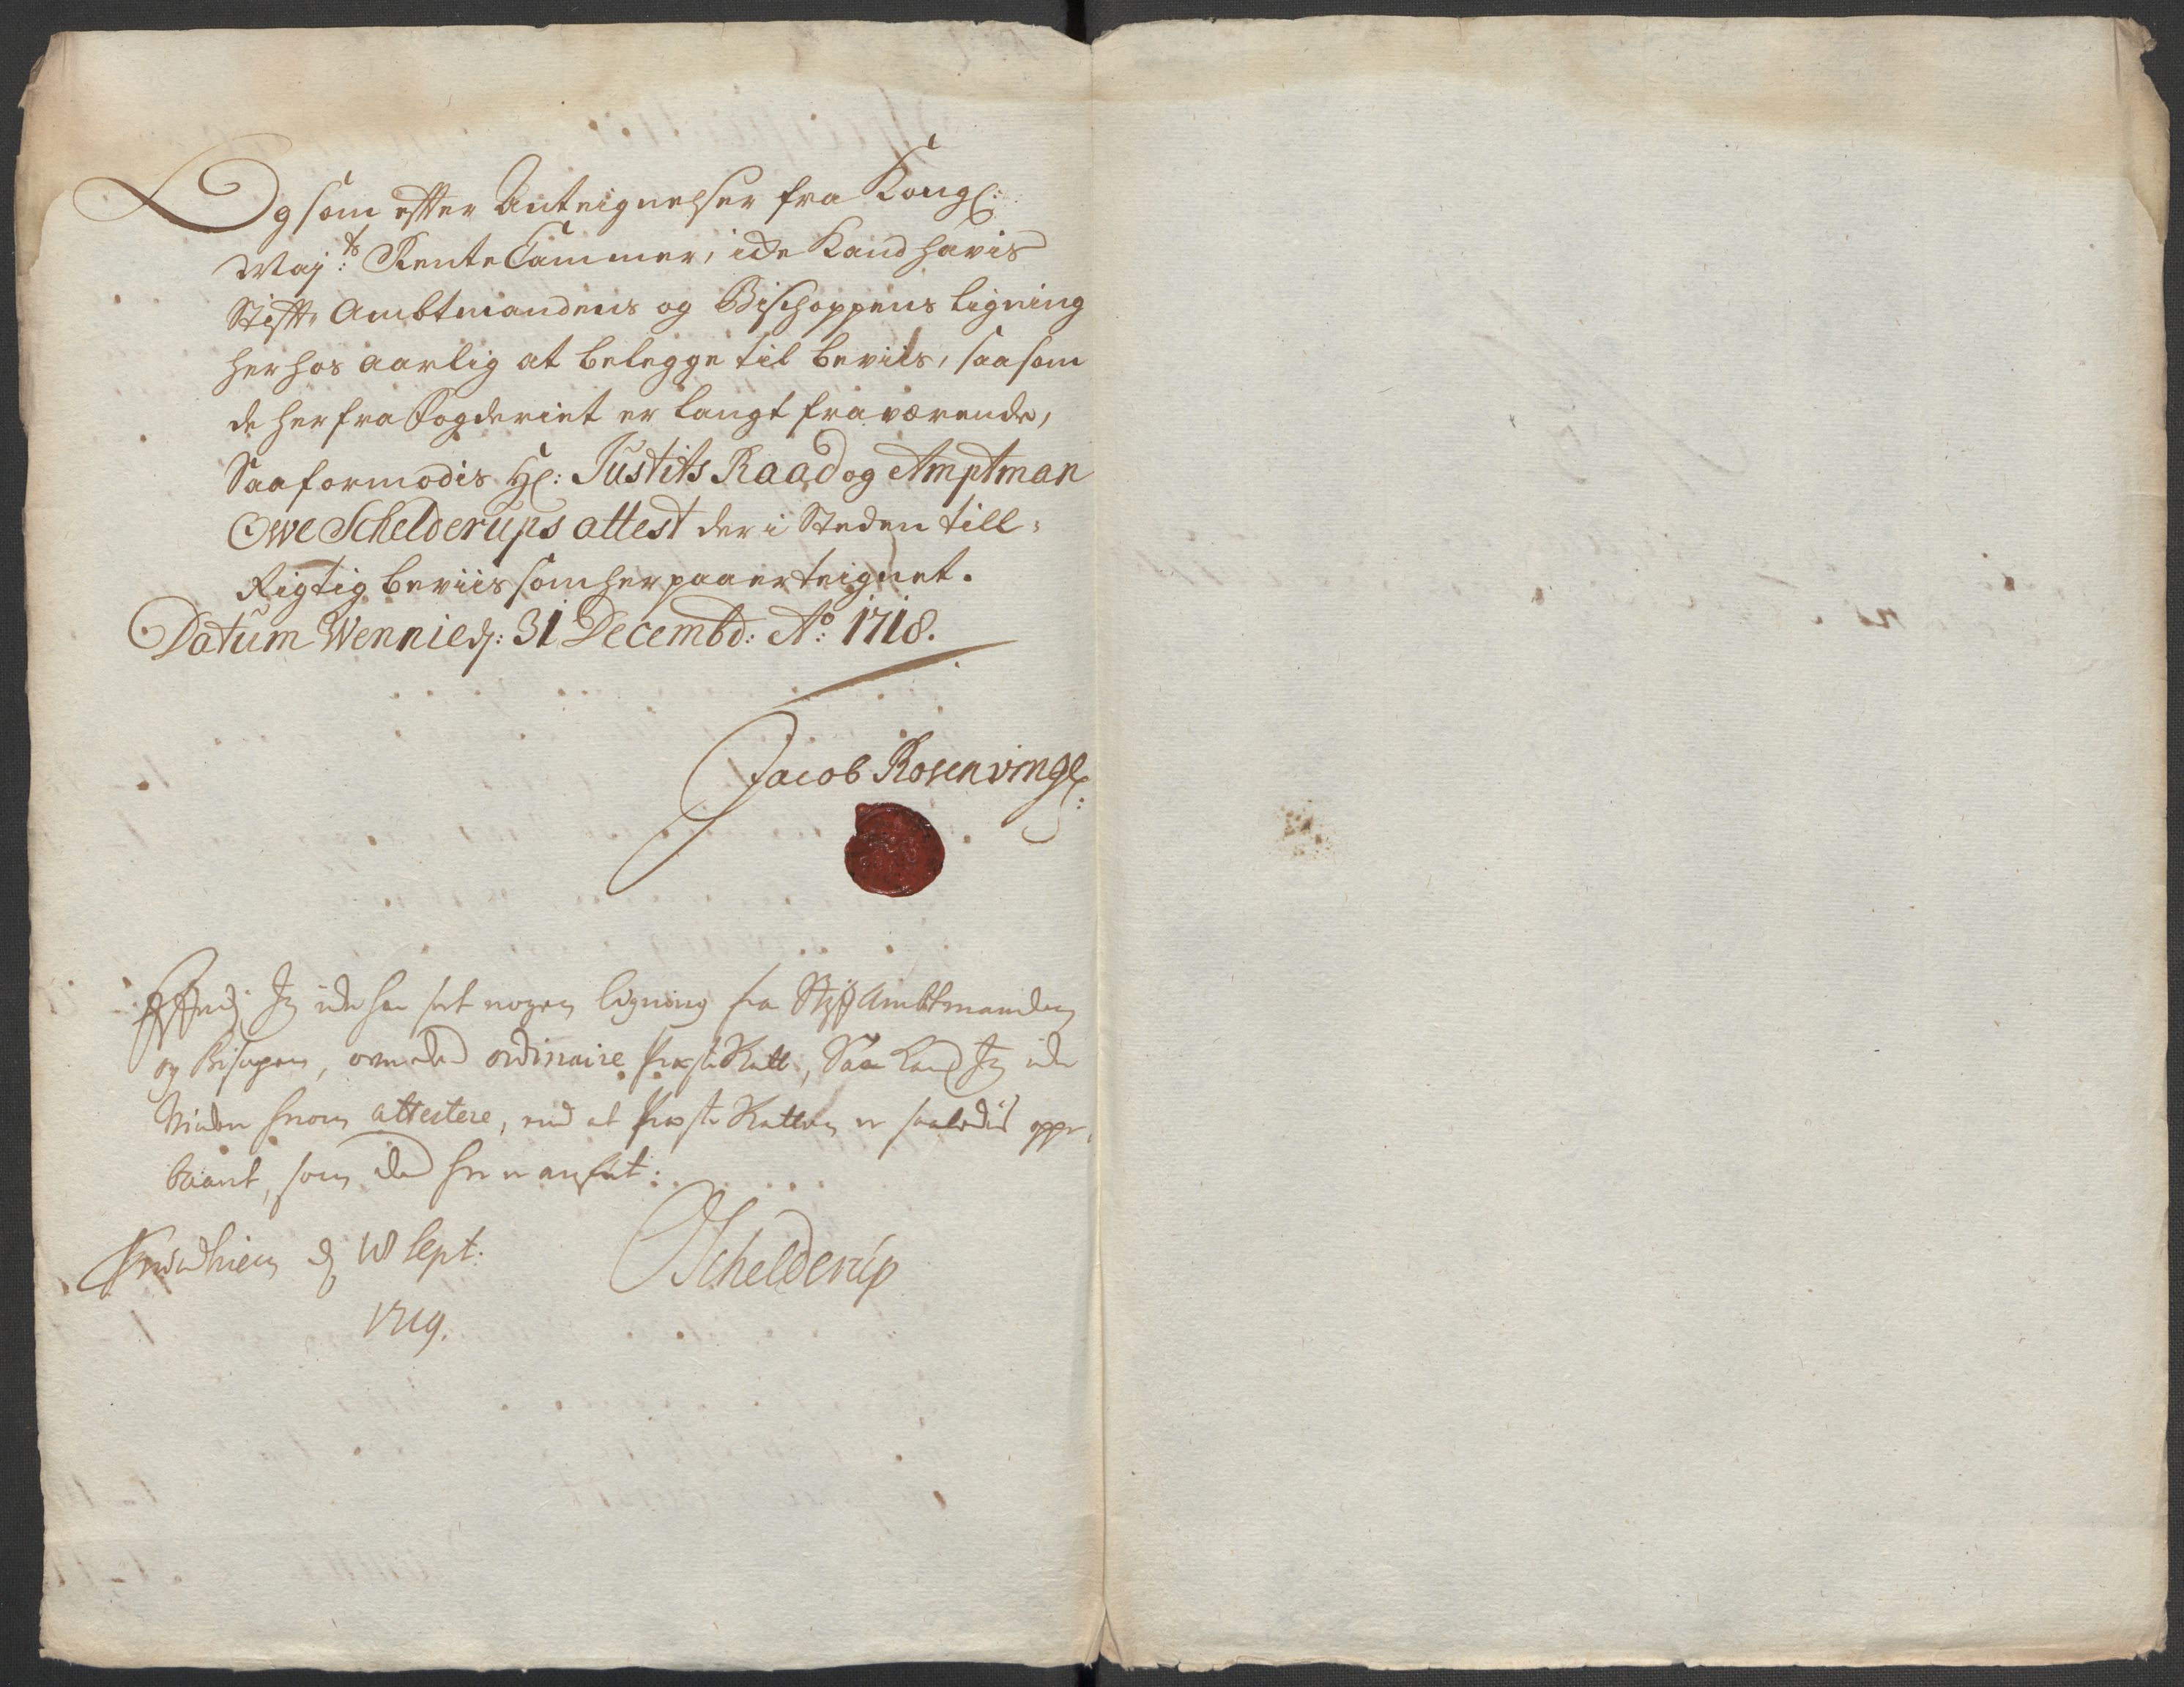 Og som effter Anteignelser fra Kongl:
Maj:ts Rente Cammer, icke kand havis
Stifft Ambtmandens og Bischoppens ligning
her hos aarlig at belegge til beviis, saasom
de her fra Fogderiet er langt fraværende,
Saa formodis Hl: Justits Raad og Amptman
Owe Schelderups attest der i Steden till
Rigtig beviis som her paa er teignet.
Datum Wennied: 31 Decembd: Ao: 1718.
Jacob Rosenvinge
Jeg icke har seet nogen ligning fra Stifft Ambtmanden
og Bispen, over den ordinaire Skatt, Saa kand Jeg icke
Viidere herom attestere, end at Skatten er saaledis oppe,
baaret, som den her er anført:
d 18 Sept:
OSchelderup
1719.